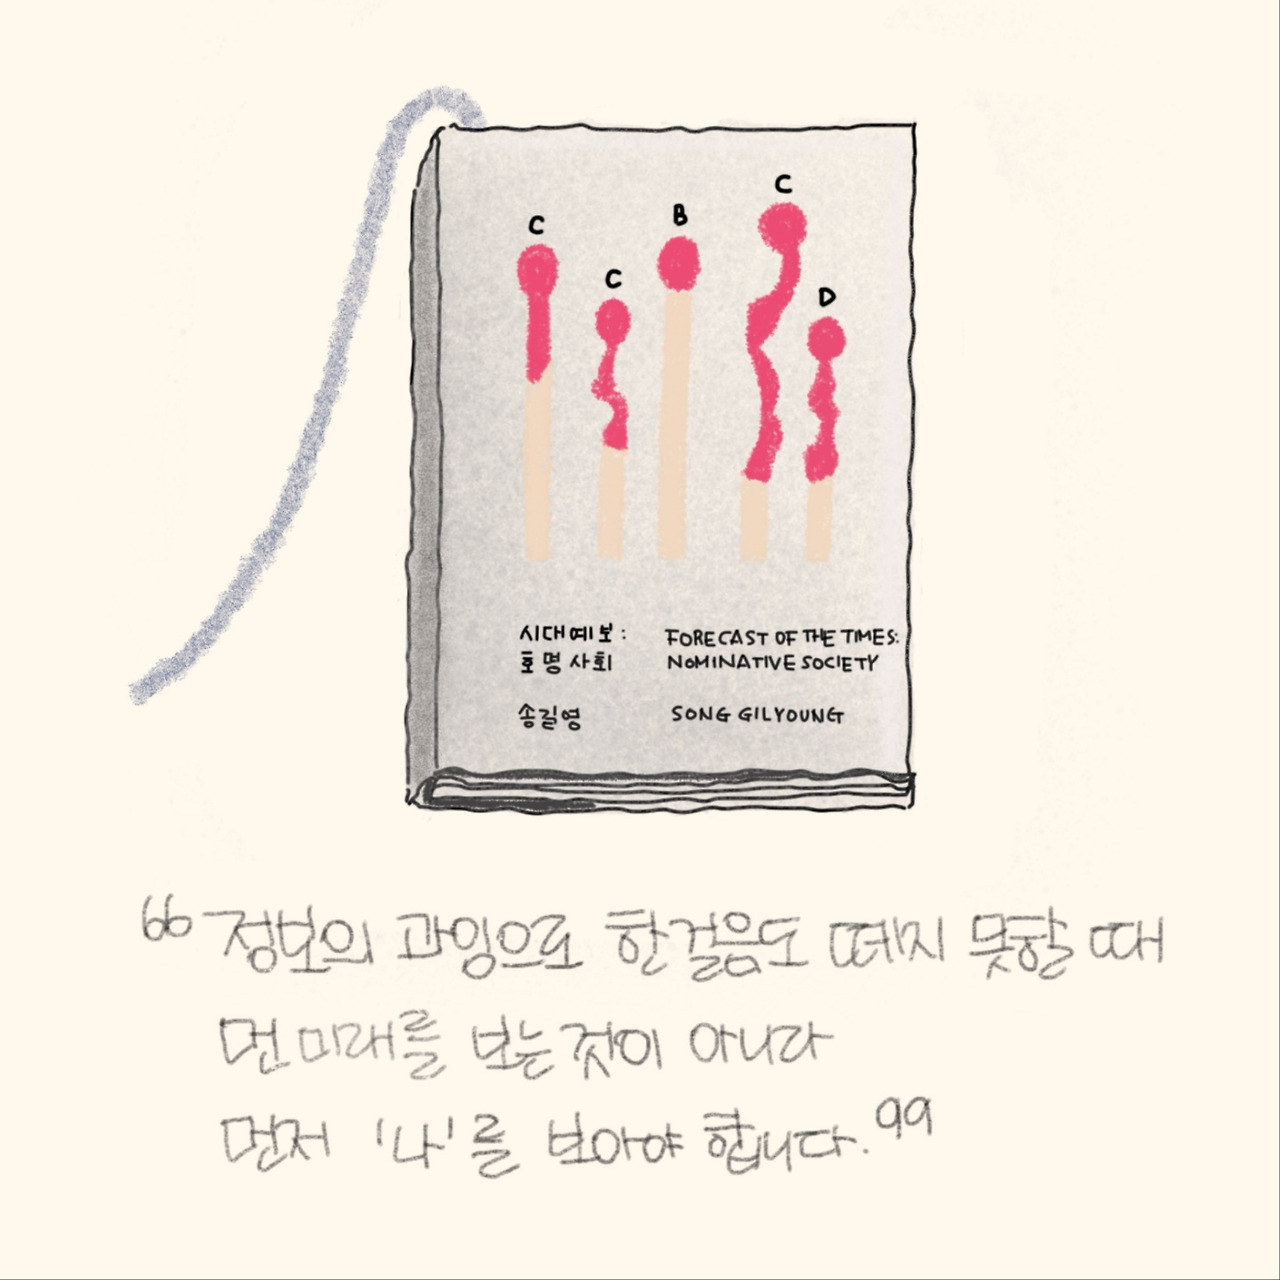 C
C
C
B
D
시대예보:
호명사회
FORECAST OF THE TIMES:
NOMINATIVE SOCIETY
송길영
SONG GILYOUNG
“정보의 과잉으로 한걸음도 떼지 못할 때
먼 미래를 보는것이 아니라
먼저 '나'를 보아야 합니다.”